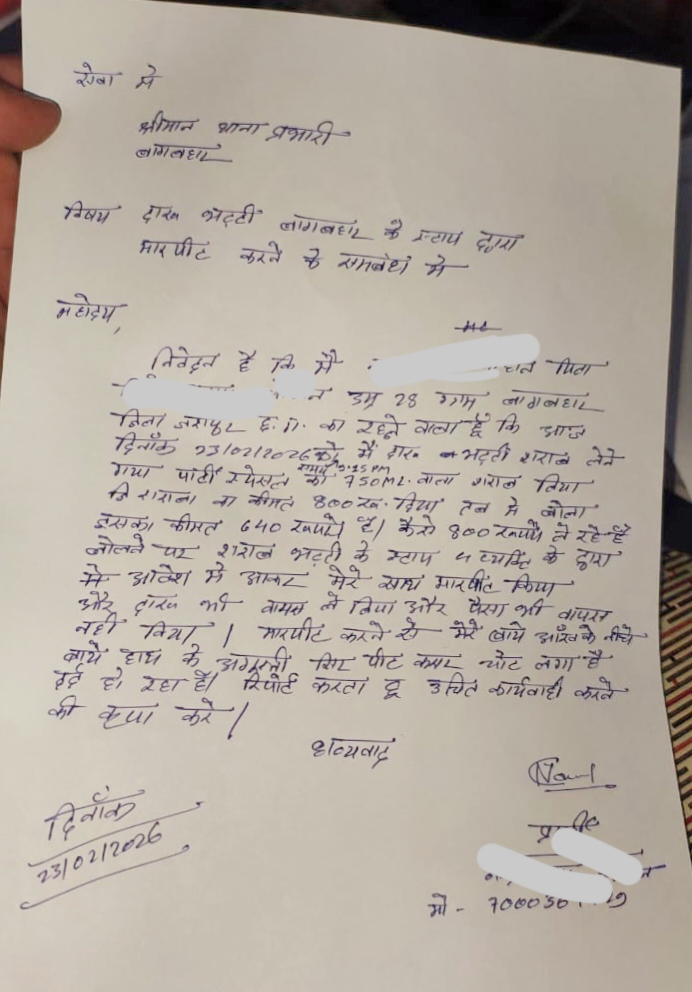 सेवा मे
श्रीमान थाना प्रभारी
बागबहार
विषय दारू भट्टी बागबहार के स्टाप द्वारा
मारपीट करने के समबंध मे
महोदय,
निवेदन है कि मै पिता
उम्र 28 ग्राम बागबहार
जिला जशपुर छ.ग. का रहने वाला हूँ कि आज
दिनाँक 23/02/2026 को मैं दारू भट्टी शराब लेने
समय 9:25 PM
गया पार्टी स्पेसल का 750ML. वाला शराब लिया
शराब का कीमत 800 रू. लिया तब मे बोला
इसका कीमत 640 रूपये है। कैसे 800 रूपये ले रहे है
बोलने पर शराब भट्टी के स्टाप 4 व्यक्ति के द्वारा
मे आवेश मे आकर मेरे साथ मारपीट किया
और दारू भी वापस ले लिया और पैसा भी वापस
नही दिया। मारपीट करने से मेरे बाये आँख के नीचे
बाये हाथ के सिर पीट कमर चोट लगा है
दर्द हो रहा है। रिपोर्ट करता हू उचित कार्यवाही करने
की कृपा करे।
धन्यवाद
दिनाँक
23/02/2026
प्रार्थी
मो - 7000